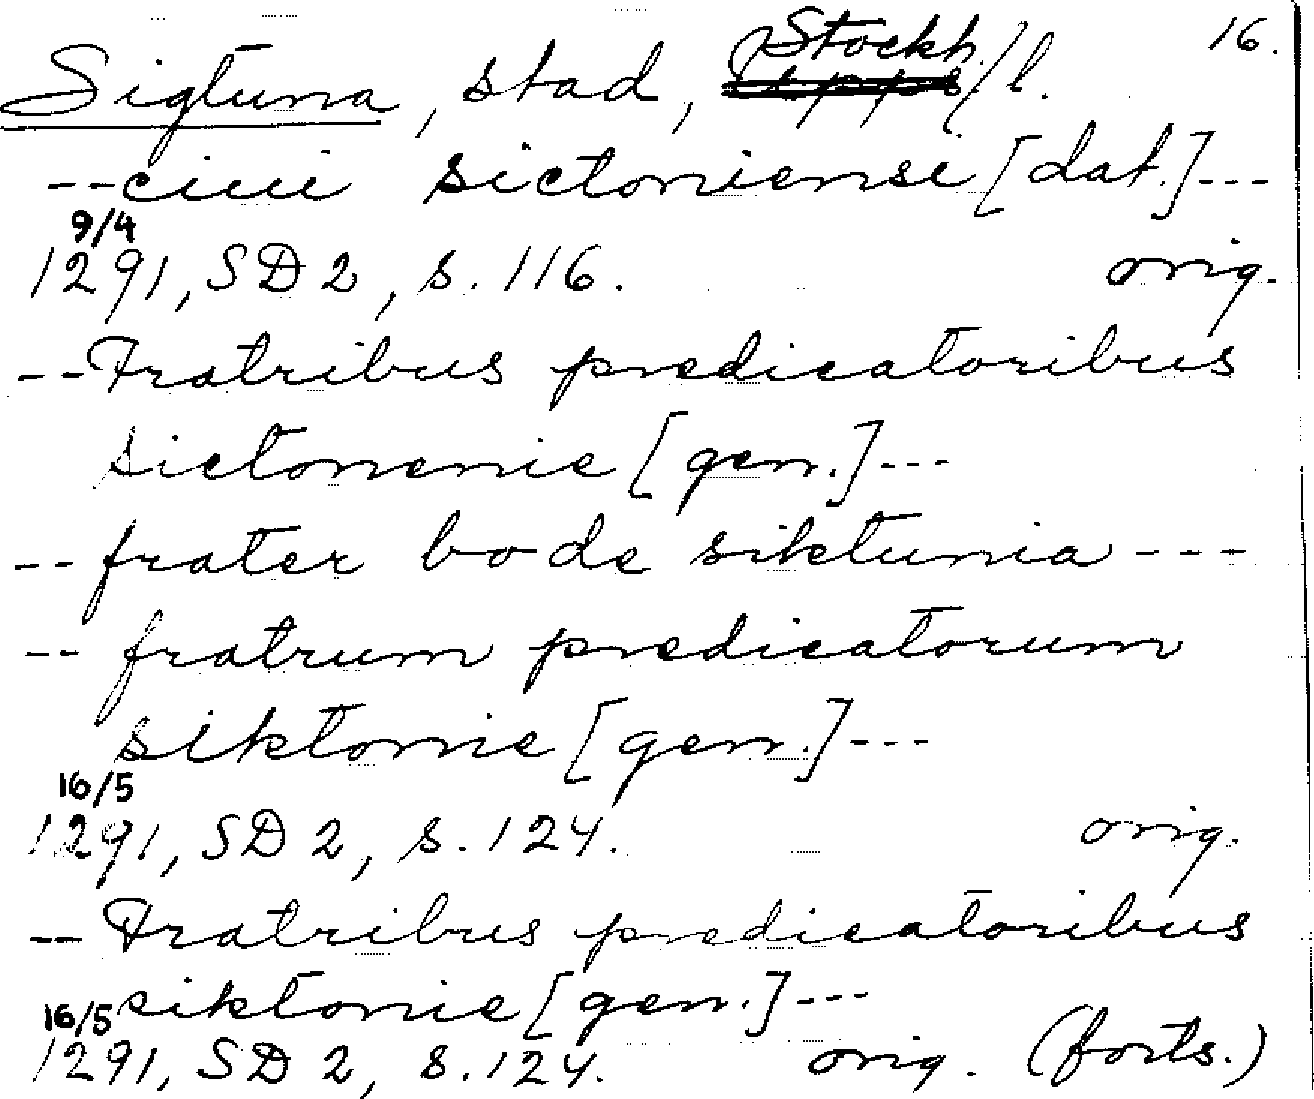 16.
Sigtuna, stad, Stockh./l.
--ciui sictoniense [dat.]---
9/4
1291, SD 2, s. 116. orig.
--Fratribus predicatoribus
sictonenie [gen.]---
--frater bode siktunia---
-- fratrum predicatorum
siktonie [gen.]---
16/5
1291, SD 2, s. 124. orig.
-- Fratribus predicatoribus
siktonie [gen.]---
16/5
1291, SD 2, s. 124. orig. (forts.)